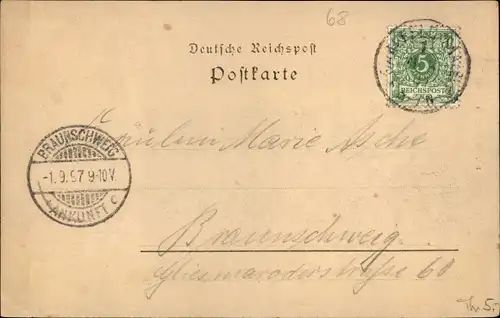 68
Deutsche Reichspost
Postkarte
5
REICHSPOST
Fräulein Marie Asche
BRAUNSCHWEIG
-1.9.97 9-10V.
ANKUNFT C
Braunschweig.
Gliesmaroderstraße 60
Th. 5.-